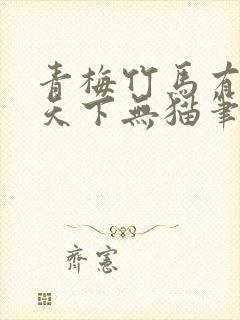 青梅竹馬有
天下無貓筆
齊憲